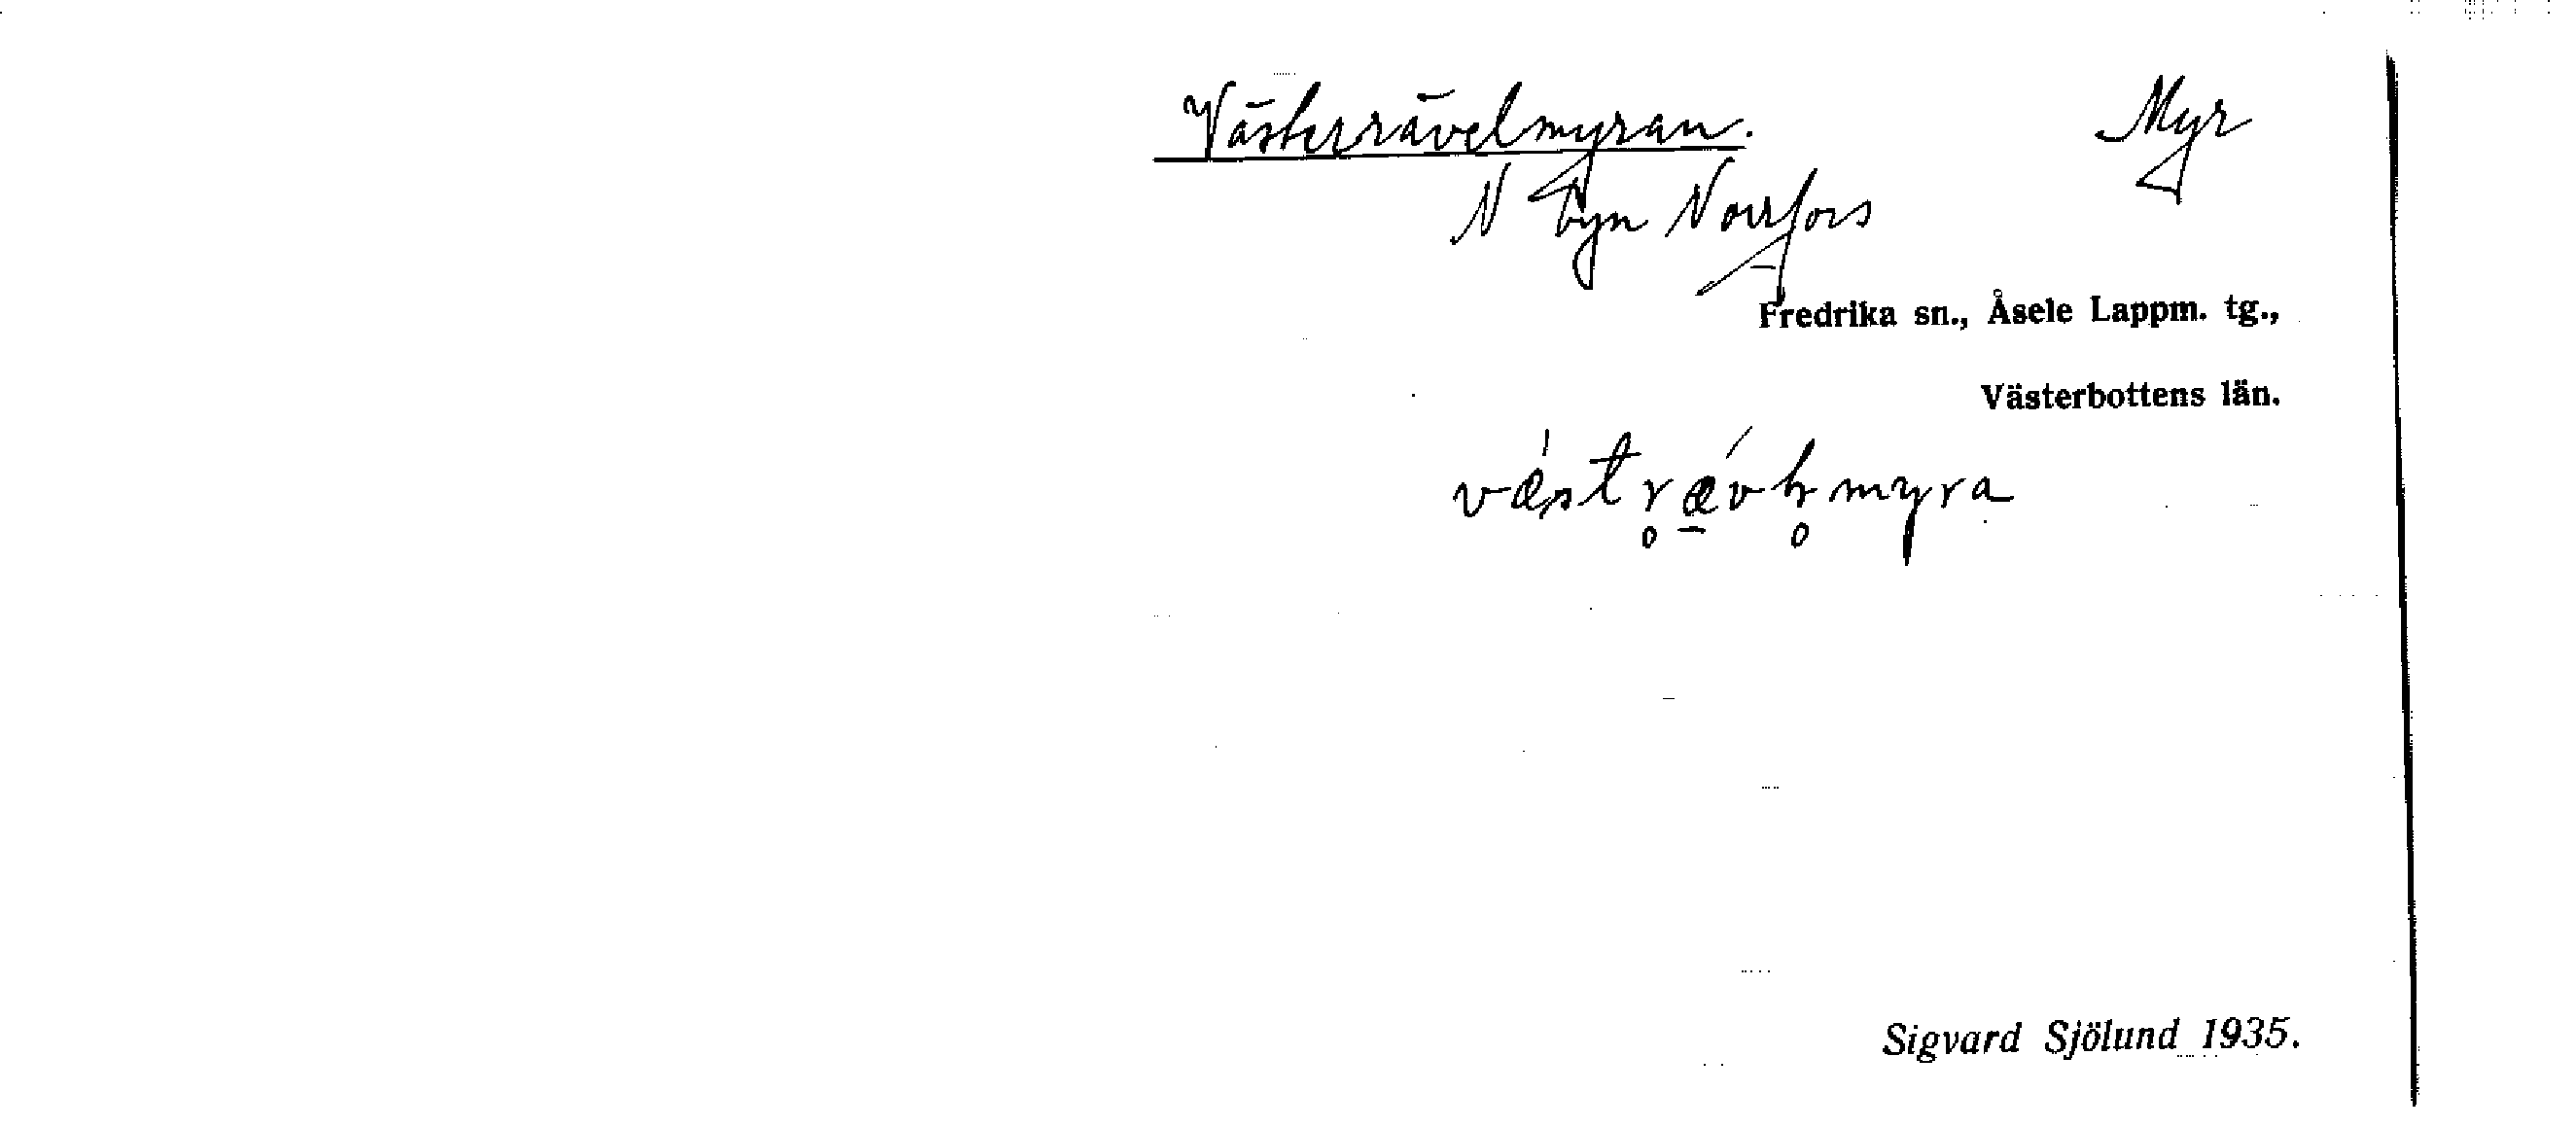 Västerrävelmyran. Myr
N byn Norrfors
Fredrika sn., Åsele Lappm. tg.,
Västerbottens län.
Sigvard Sjölund 1935.